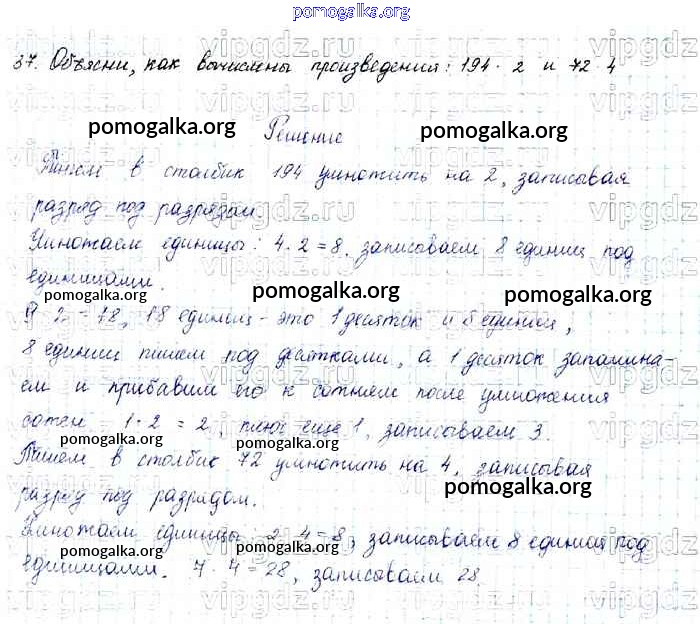 pomogalka.org
37. Объясни, как вычислены произведения: 194 · 2 и 72 · 4
pomogalka.org pomogalka.org
Решение
Пишем в столбик 194 умножить на 2, записывая
разряд под разрядом.
Умножаем единицы: 4 · 2 = 8, записываем 8 единиц под
единицами.
pomogalka.org pomogalka.org pomogalka.org
9 · 2 = 18, 18 единиц - это 1 десяток и 8 единиц,
8 единиц пишем под десятками, а 1 десяток запомина-
ем и прибавим его к сотням после умножения
сотен 1 · 2 = 2, плюс еще 1, записываем 3.
pomogalka.org pomogalka.org pomogalka.org
Пишем в столбик 72 умножить на 4, записывая
pomogalka.org
разряд под разрядом.
Умножаем единицы 2 · 4 = 8, записываем 8 единиц под
pomogalka.org pomogalka.org
единицами. 7 · 4 = 28, записываем 28.